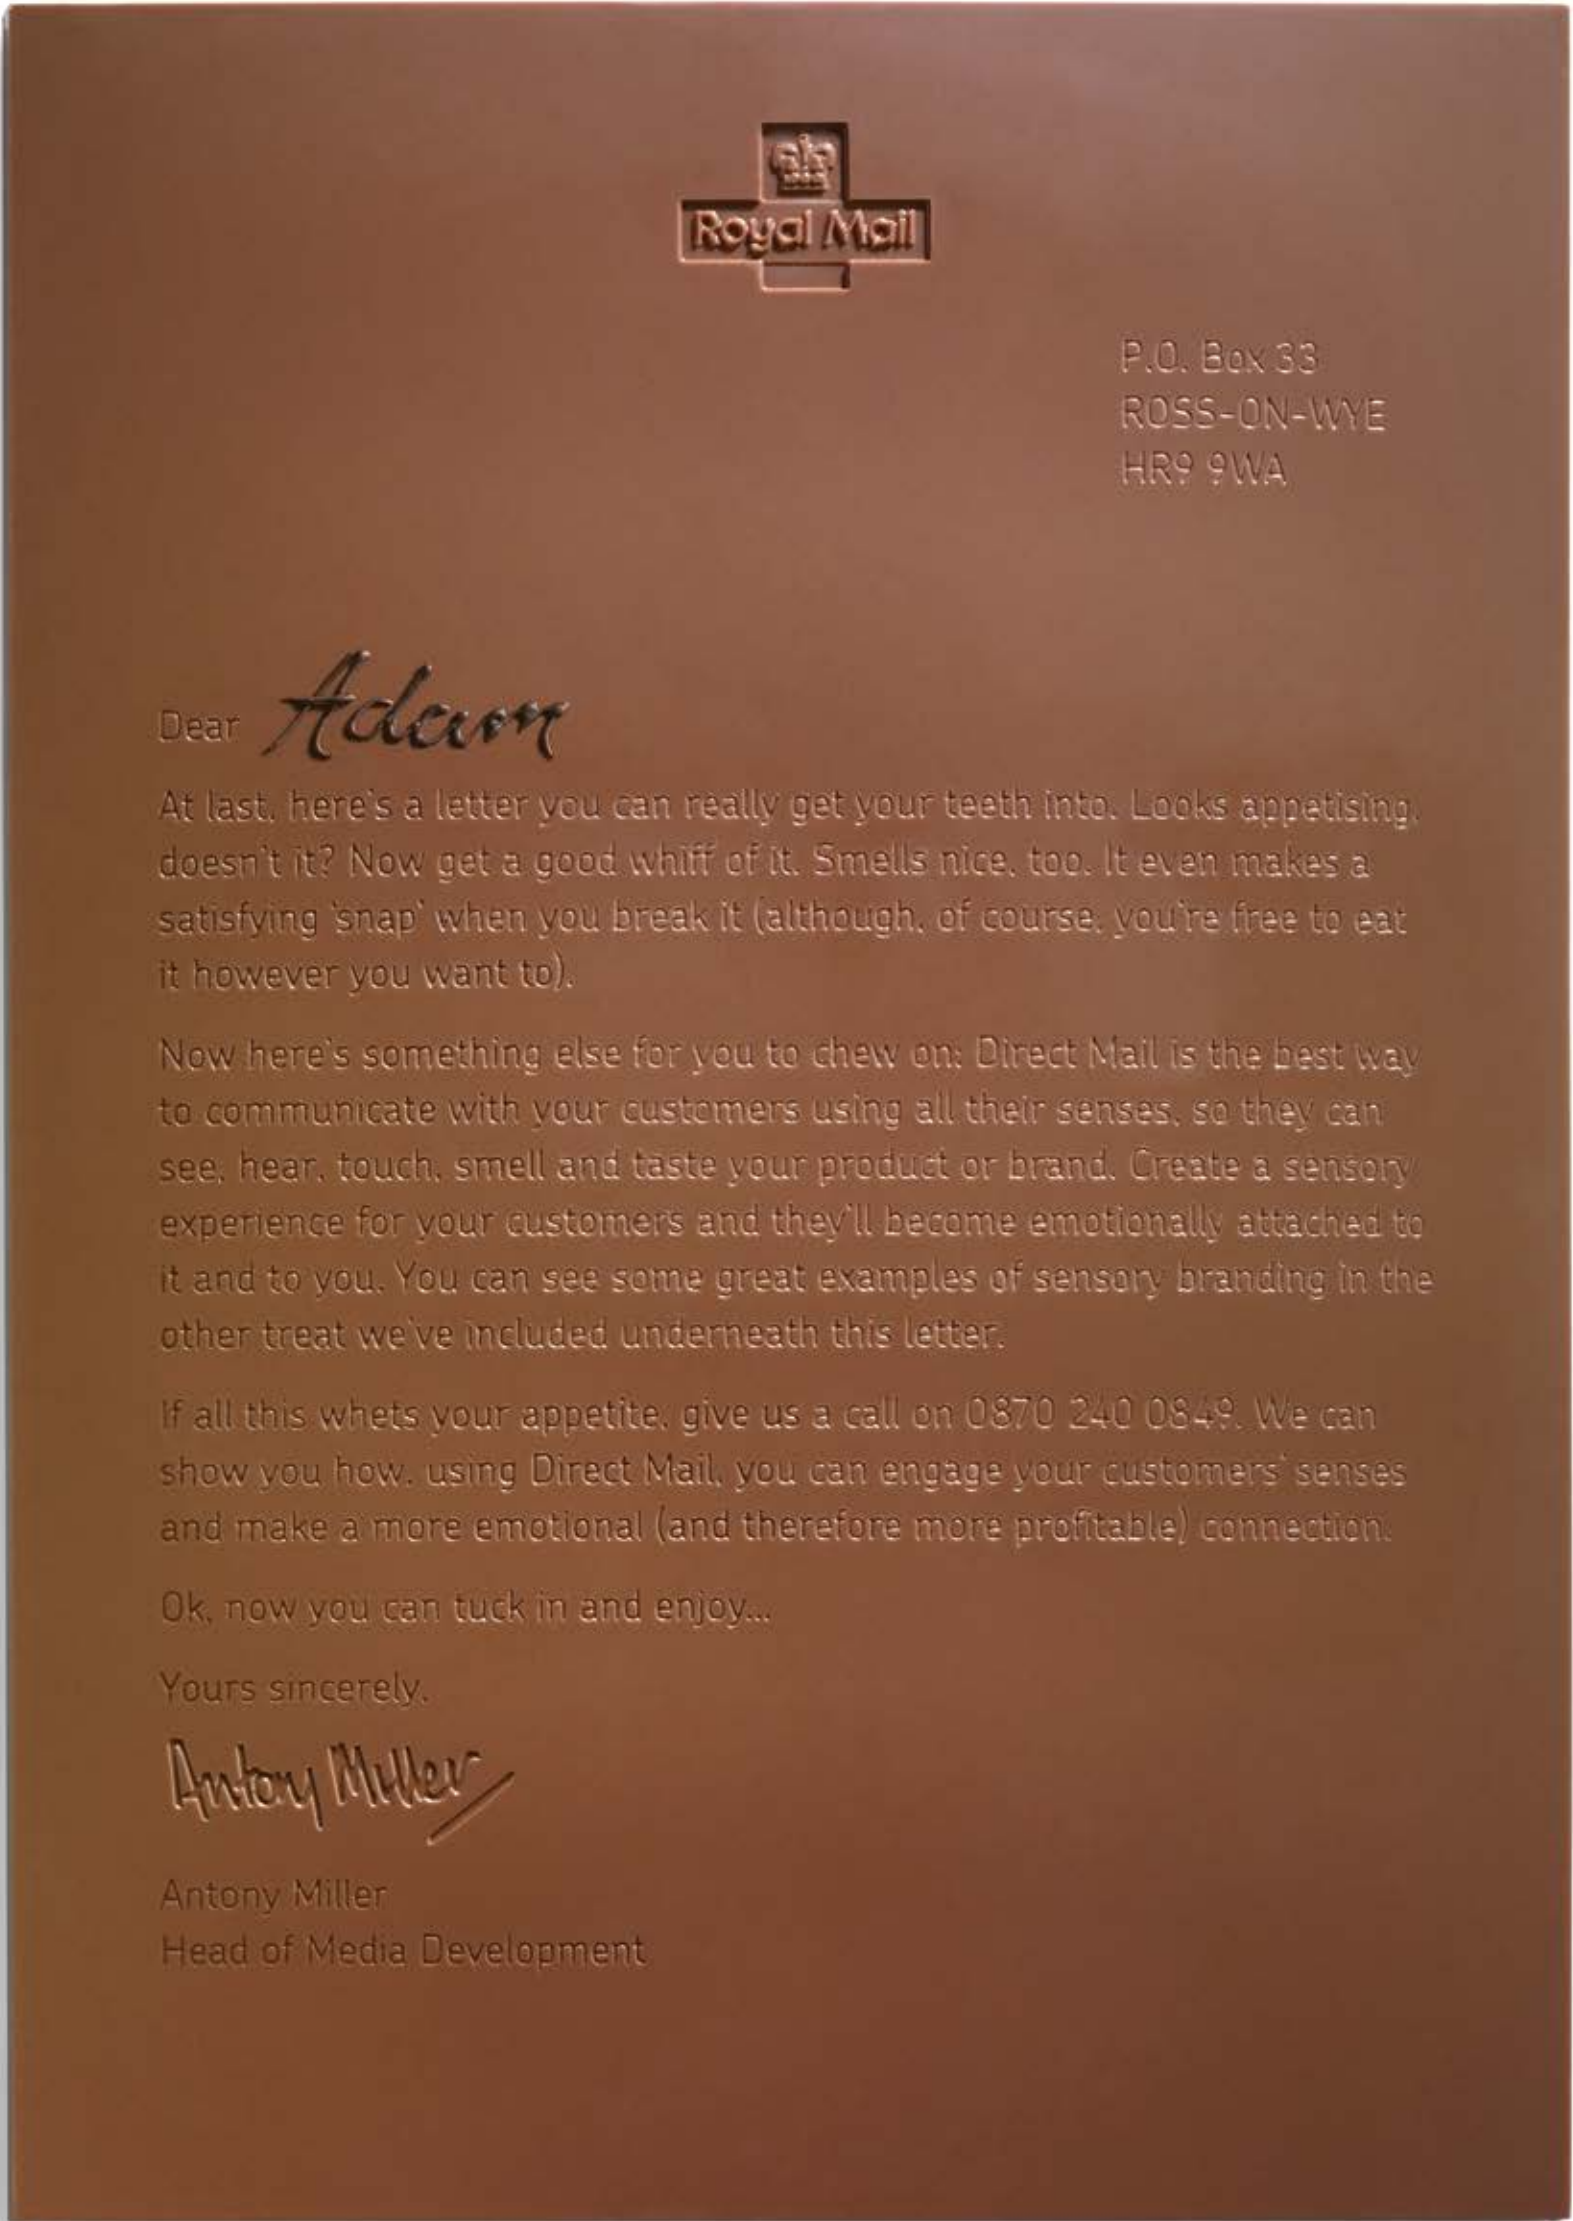 Royal Mail
P.O. Box 33
ROSS-ON-WYE
HR9 9WA
Dear Adam
At last, here's a letter you can really get your teeth into. Looks appetising,
doesn't it? Now get a good whiff of it. Smells nice, too. It even makes a
satisfying 'snap' when you break it (although, of course, you're free to eat
it however you want to).
Now here's something else for you to chew on: Direct Mail is the best way
to communicate with your customers using all their senses, so they can
see, hear, touch, smell and taste your product or brand. Create a sensory
experience for your customers and they'll become emotionally attached to
it and to you. You can see some great examples of sensory branding in the
other treat we've included underneath this letter.
If all this whets your appetite, give us a call on 0870 240 0849. We can
show you how, using Direct Mail, you can engage your customers' senses
and make a more emotional (and therefore more profitable) connection.
Ok, now you can tuck in and enjoy...
Yours sincerely,
Antony Miller
Antony Miller
Head of Media Development